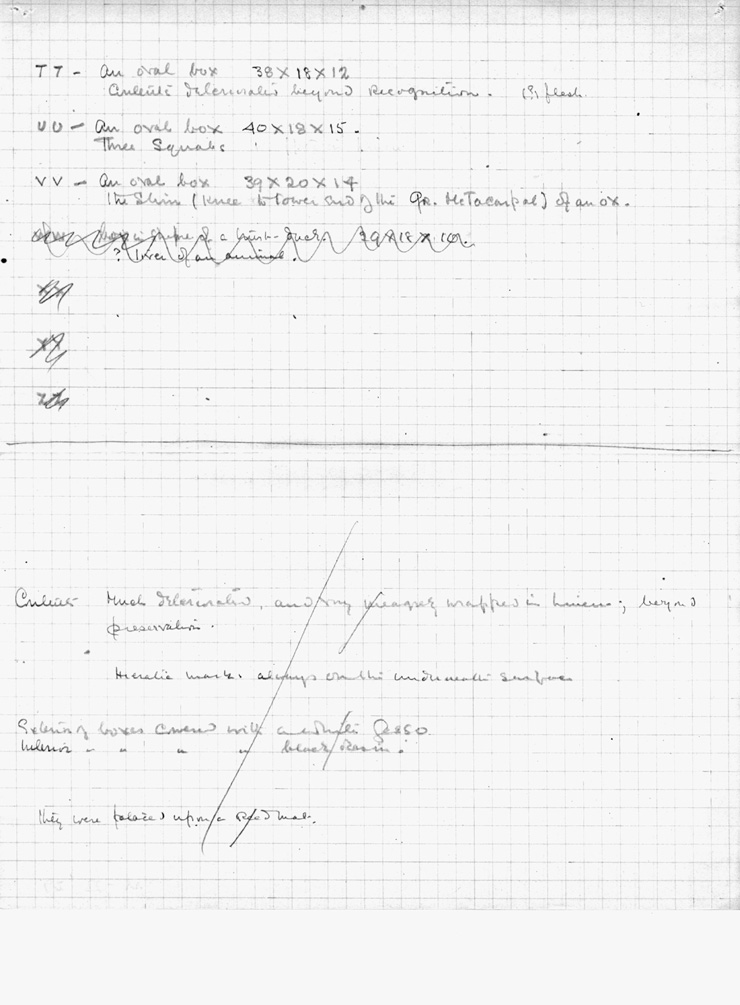 TT - An oval box 38 X 18 X 12
Contents deteriorated beyond recognition. (?) flesh.
UU - An oval box 40 X 18 X 15.
Three Squabs
VV - An oval box 39 X 20 X 14
The Shin (Knee to lower end of the Gr. Metacarpal) of an ox.
box in shape of a 29 X 18 X
? liver of an animal.
Contents Much deteriorated, and very meagrely wrapped in linen; beyond
preservation.
Hieratic marks always on the underneath surface
Exterior of boxes covered with a white Gesso
Interior " " " " black Resin.
They were placed upon a reed mat.